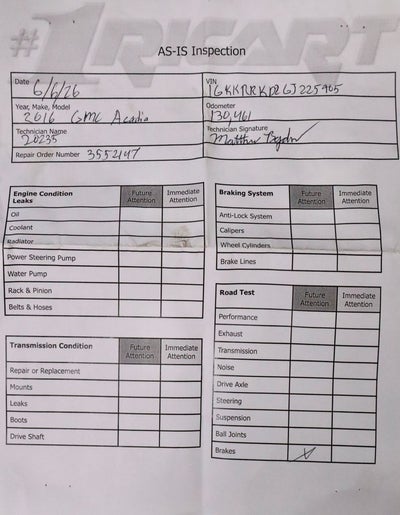 #1 RICART
AS-IS Inspection
Date 6/6/26
VIN 1GKKRRKD2GJ225905
Year, Make, Model 2016 GMC Acadia
Odometer 130,461
Technician Name 20235
Technician Signature Matthew
Repair Order Number 3552147
Engine Condition Leaks Future Attention Immediate Attention
Oil
Coolant
Radiator
Power Steering Pump
Water Pump
Rack & Pinion
Belts & Hoses
Transmission Condition Future Attention Immediate Attention
Repair or Replacement
Mounts
Leaks
Boots
Drive Shaft
Braking System Future Attention Immediate Attention
Anti-Lock System
Calipers
Wheel Cylinders
Brake Lines
Road Test Future Attention Immediate Attention
Performance
Exhaust
Transmission
Noise
Drive Axle
Steering
Suspension
Ball Joints
Brakes